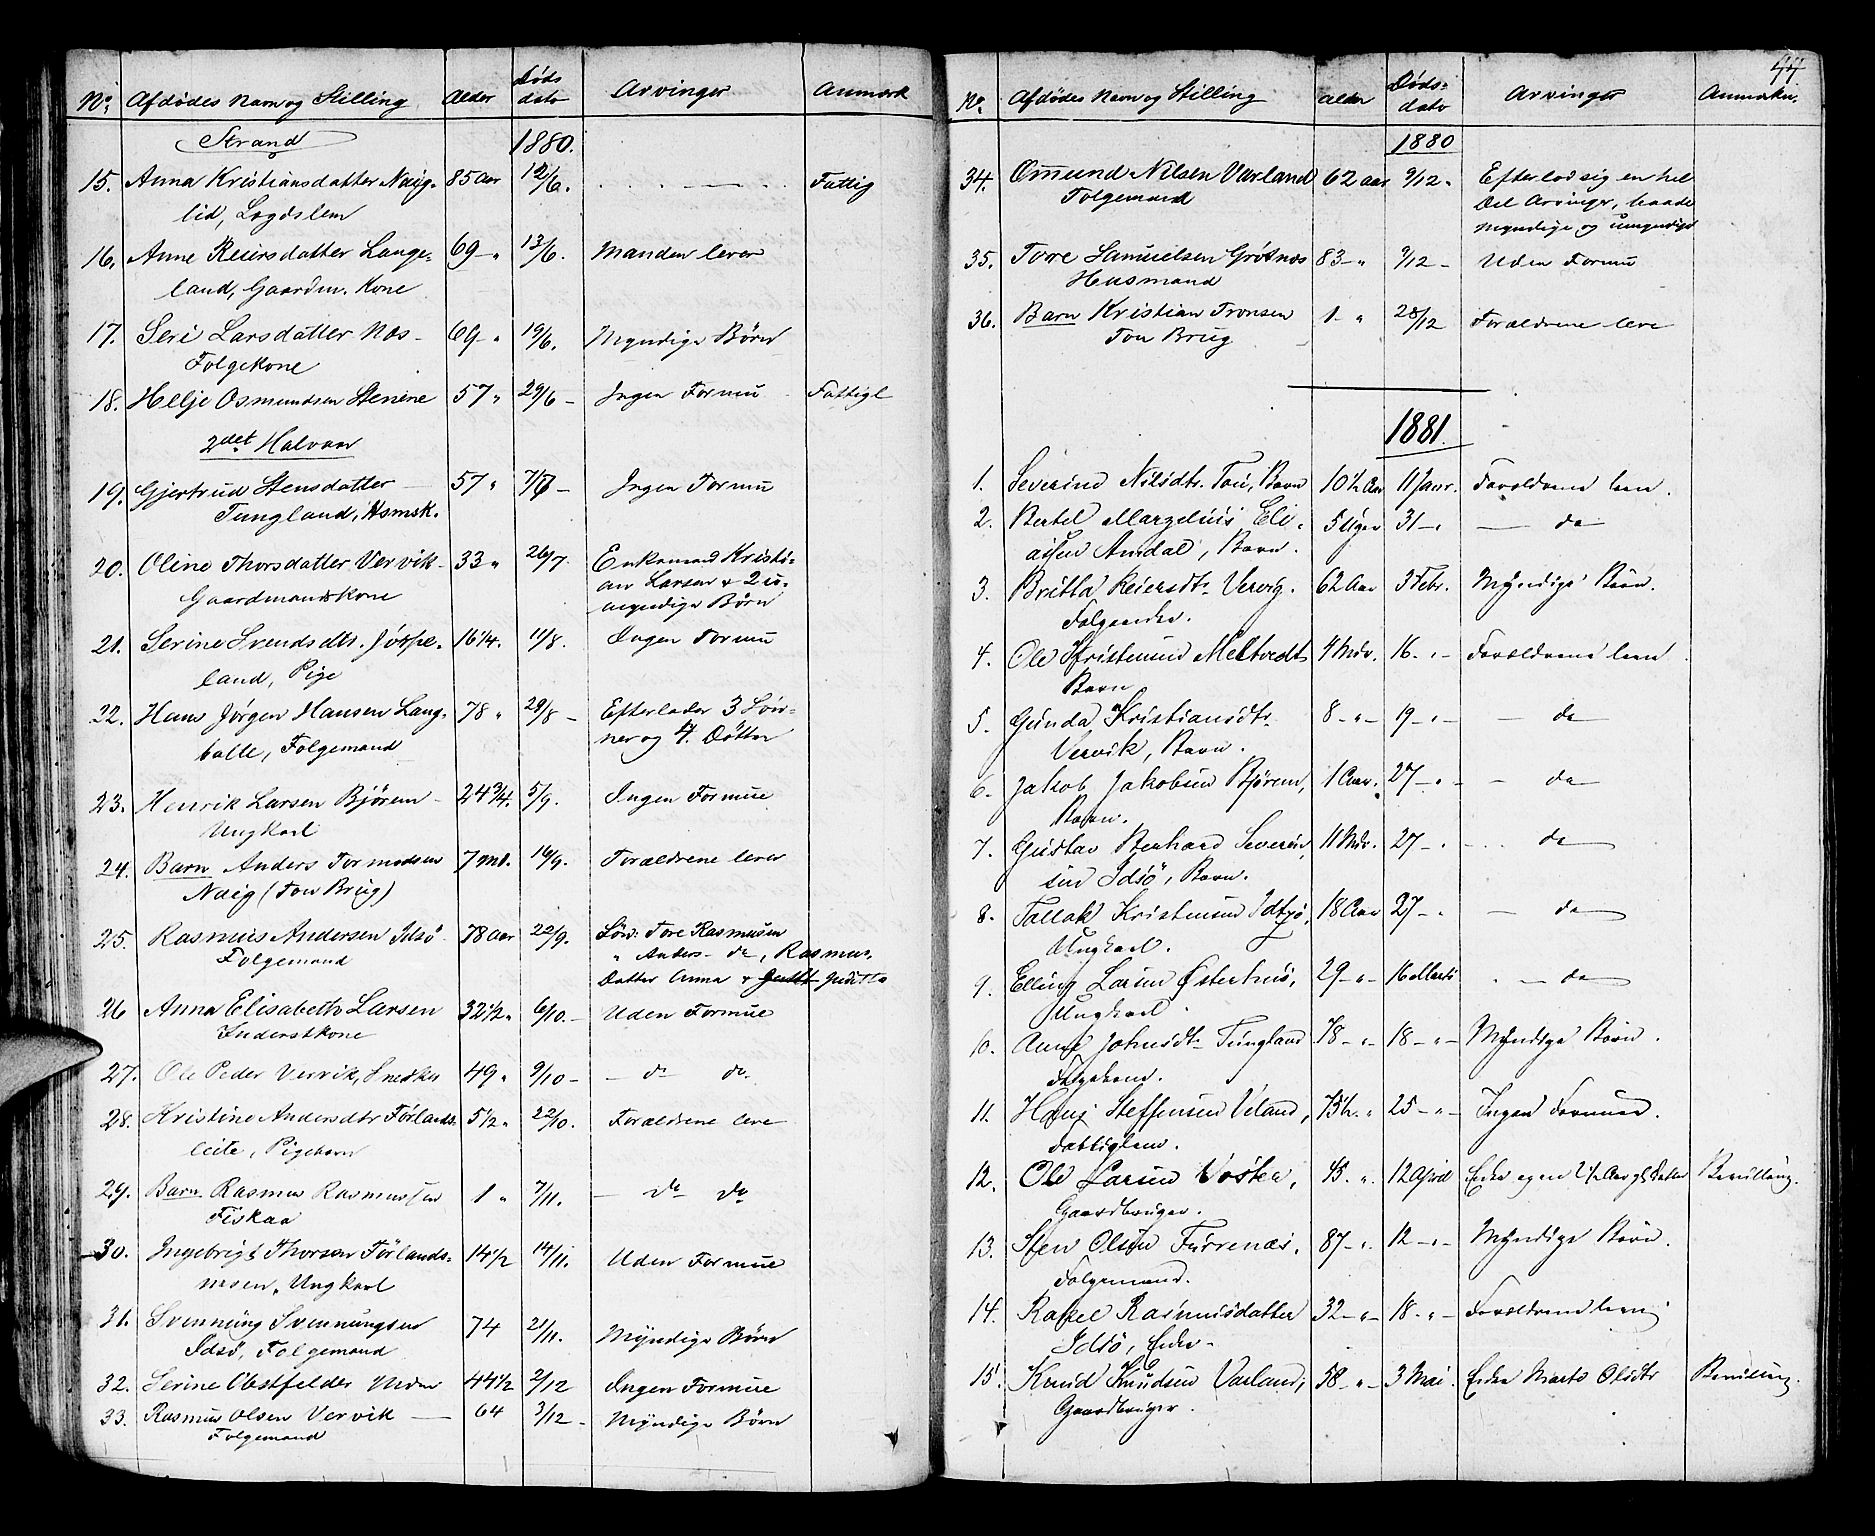 No. Afdødes Navn og Stilling Alder Døds dato Arvinger Anmærk
Strand 1880.
15. Anna Kristiansdatter Naig- 85 Aar 12/6. Fattig
lid, Lægdslem
16. Anne Reiersdatter Lange- 69 - " 13/6. Manden lever
land, Gaardm. Kone
17. Seri Larsdatter Næs - 69 - " 19/6. Myndige Børn
Folgekone
18. Helje Osmundsen Stenene 57 " 29/6 - Ingen Formu Fattigl
2det Halvaar
19. Gjertrud Stensdatter 57 " 7/7 - Ingen Formu
Tungland, Hsmsk.
20. Oline Thorsdatter Vervik - 33 " 26/7. Enkemand Kristi-
Gaardmandskone an Larsen & 2 u-
myndige Børn
21. Serine Svendsdtr. Jøspe- 16 1/4. 11/8. Ingen Formu
land, Pige
22. Hans Jørgen Hansen Lang- 78 " 29/8 - Efterlader 3 Søn-
balle, Folgemand ner og 4 Døttre
23. Henrik Larsen Bjørem - 24 3/4. 5/9. Ingen Formue
Ungkarl
24. Barn Anders Tormodsen 7 Md. 19/9. Forældrene lever
Naig (Tou Brug)
25. Rasmus Andersen Idsö 78 Aar 22/9. Søn: Tore Rasmusen
Folgemand " Anders - do, Rasmus,
Datter Anna & Juditta
26 Anna Elisabeth Larsen 32 1/2 " 6/10. - Uden Formue
Inderstkone
27. Ole Peder Vervik, Snedker 49 " 9/10 - - do do
28. Kristine Andersdtr Førlands- 5 1/2 " 22/10. Forældrene leve
leite, Pigebarn
29. Barn Rasmus Rasmussen 1 " 7/11. - do do
Fiskaa
30. Ingebrigt Thorsen Førlands- 14 1/2 14/11. Uden Formue
nesen, Ungkarl
31. Svennung Svennungsen 74 21/11. Myndige Børn
Idsö, Folgemand
32. Serine Obstfelder Mdm 44 1/2 2/12 Ingen Formue
33. Rasmus Olsen Vervik 64 3/12 - Myndige Børn
Folgemand
No. Afdødes Navn og Stilling Alder Døds- dato Arvinger Anmærkn.
1880
34. Omund Nilsen Varland 62 aar 9/12 " Efterlod sig en hel
Folgemand Del Arvinger, baade
myndige og umyndige
35. Tore Samuelsen Grøtnæs 83 - " 9/12 - Uden Formu
Husmand
36. Barn Kristian Tronsen 1 - " 28/12 Forældrene leve
Tou Brug
1881.
1. Severine Nilsdtr. Tou, Barn 10 1/2 Aar 11 Janr. Forældrene leve.
2. Bertel Margelius Eli- 5 Uger 31 - " - do
assen Amdal, Barn.
3. Britta Reiersdtr Vervig. 62 Aar 3 Febr. Myndige Børn.
Folgeenke.
4. Ole Kristensen Meltvedt 4 Mdr. 16 - " - Forældrene leve
Barn
5. Gunda Kristiansdtr 8 - " - 19 - " - - do
Vervik, Barn.
6. Jakob Jakobsen Bjørem, 1 Aar. 27 - " - - do
Barn.
7. Gustav Berhard Severin- 11 Mdr. 27 - " - do
sen Idsö, Barn.
8. Tallak Kristensen Idsö, 18 Aar 27 - " - do
Ungkarl.
9. Elling Larsen Østerhus, 29 - " - 16 Marts - do
Ungkarl.
10. Anne Johnsdtr Tungland 78 - " - 18 - " - Myndige Børn.
Folgekone.
11. Hans Steffensen Veland, 75 1/2 " 25 - " - Ingen Formue.
Fattiglem.
12. Ole Larsen Voster, 45. " 12 April Enke og en 2 1/2 Aar gl. Datter Bevilling.
Gaardbruger.
13. Sten Olsen Furrenæs, 87 - " 12 - " - Myndige Børn.
Folgemand.
14. Rakel Rasmusdatter 32 - " - 18 - " - Forældrene leve.
Idsö, Enke -
15. Knud Knudsen Varland, 58 - " - 3 Mai. Enke Marte Olsdtr Bevilling.
Gaardbruger.